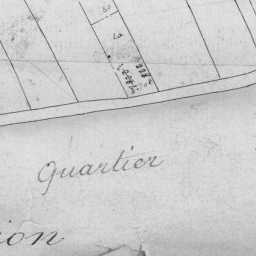 3
Quartier
ion